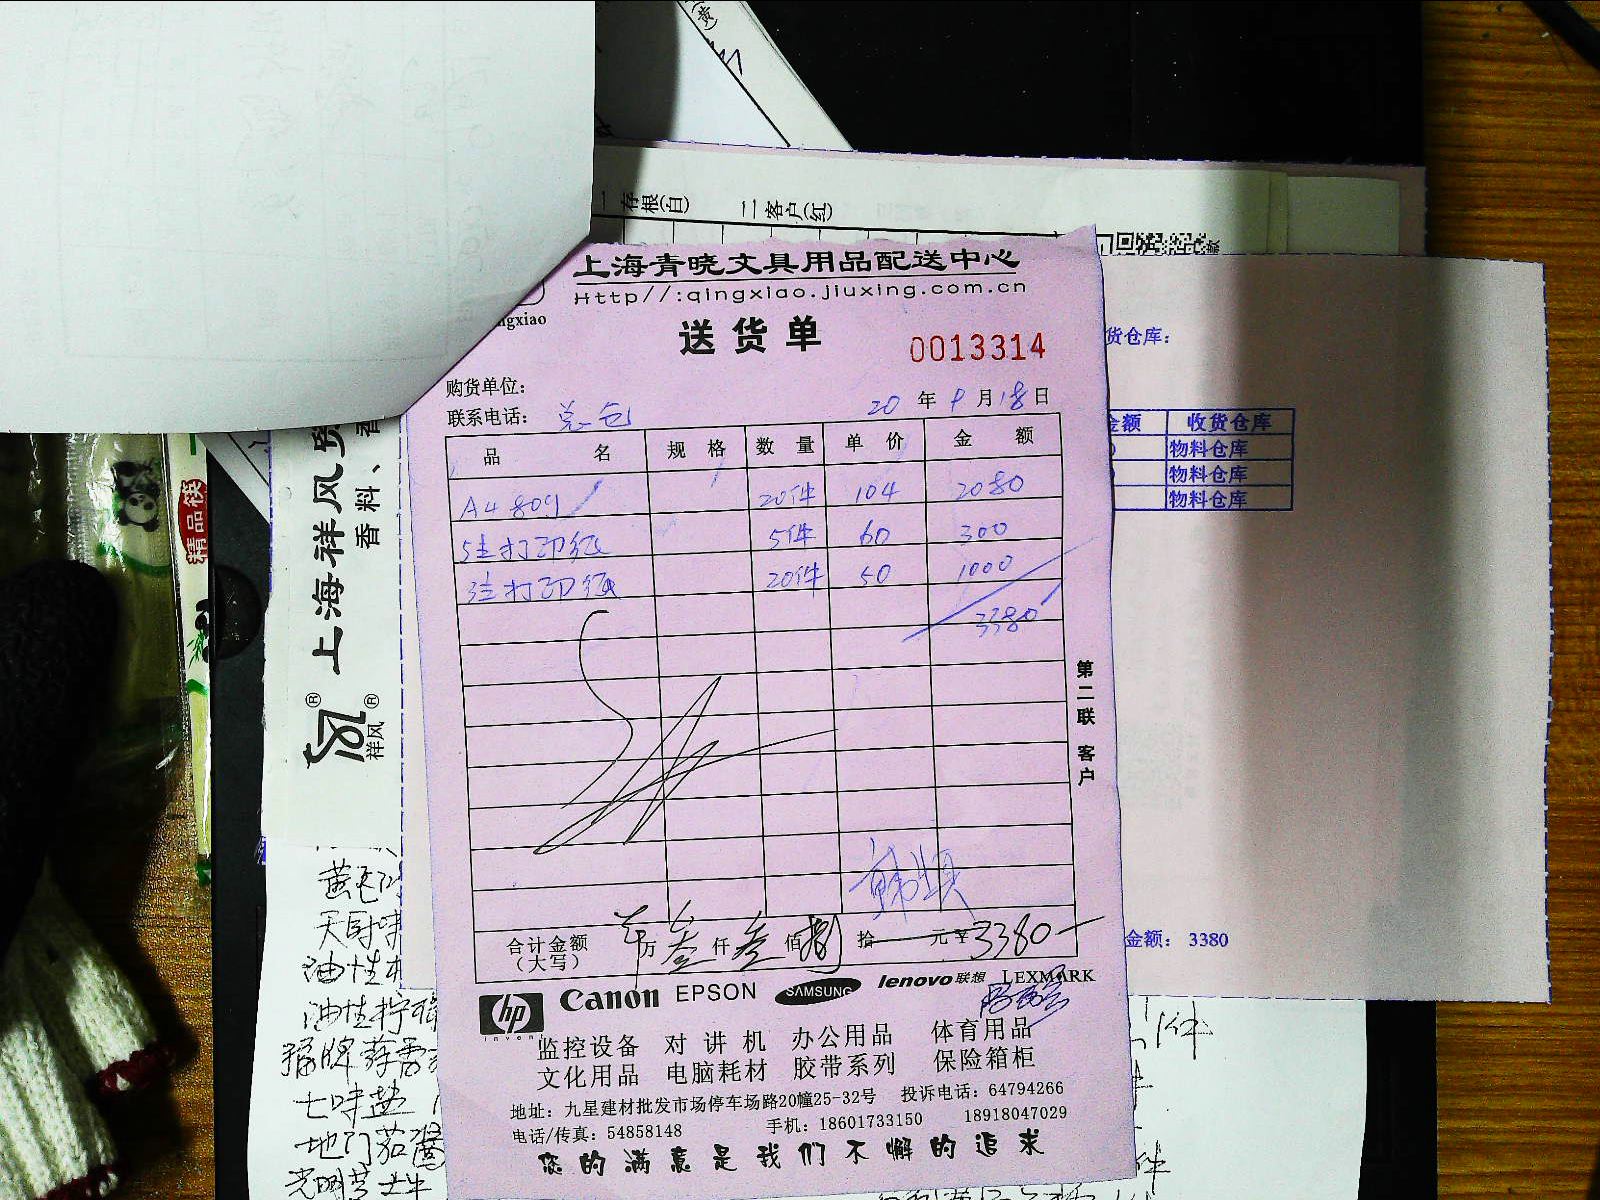 存根(白) 二客户(红)
上海青晓文具用品配送中心
Http//:qingxiao.jiuxing.com.cn
ngxiao
送货单
0013314
货仓库：
购货单位：
联系电话：
20 年 9 月 18 日
品 名 规 格 数 量 单 价 金 额
A4 80g 20件 104 2080
5层打印纸 5件 60 300
3层打印纸 20件 50 1000
3380
金额 收货仓库
物料仓库
物料仓库
物料仓库
第二联 客户
合计金额（大写） 万 叁 仟 叁 佰 捌 拾 元 ¥3380
金额： 3380
hp invent Canon EPSON SAMSUNG lenovo联想 LEXMARK
监控设备 对讲机 办公用品 体育用品
文化用品 电脑耗材 胶带系列 保险箱柜
地址：九星建材批发市场停车场路20幢25-32号 投诉电话：64794266
电话/传真：54858148 手机：18601733150 18918047029
您的满意是我们不懈的追求
精品筷
上海祥风贸
香料、香
祥风
油性柠檬
七味盐